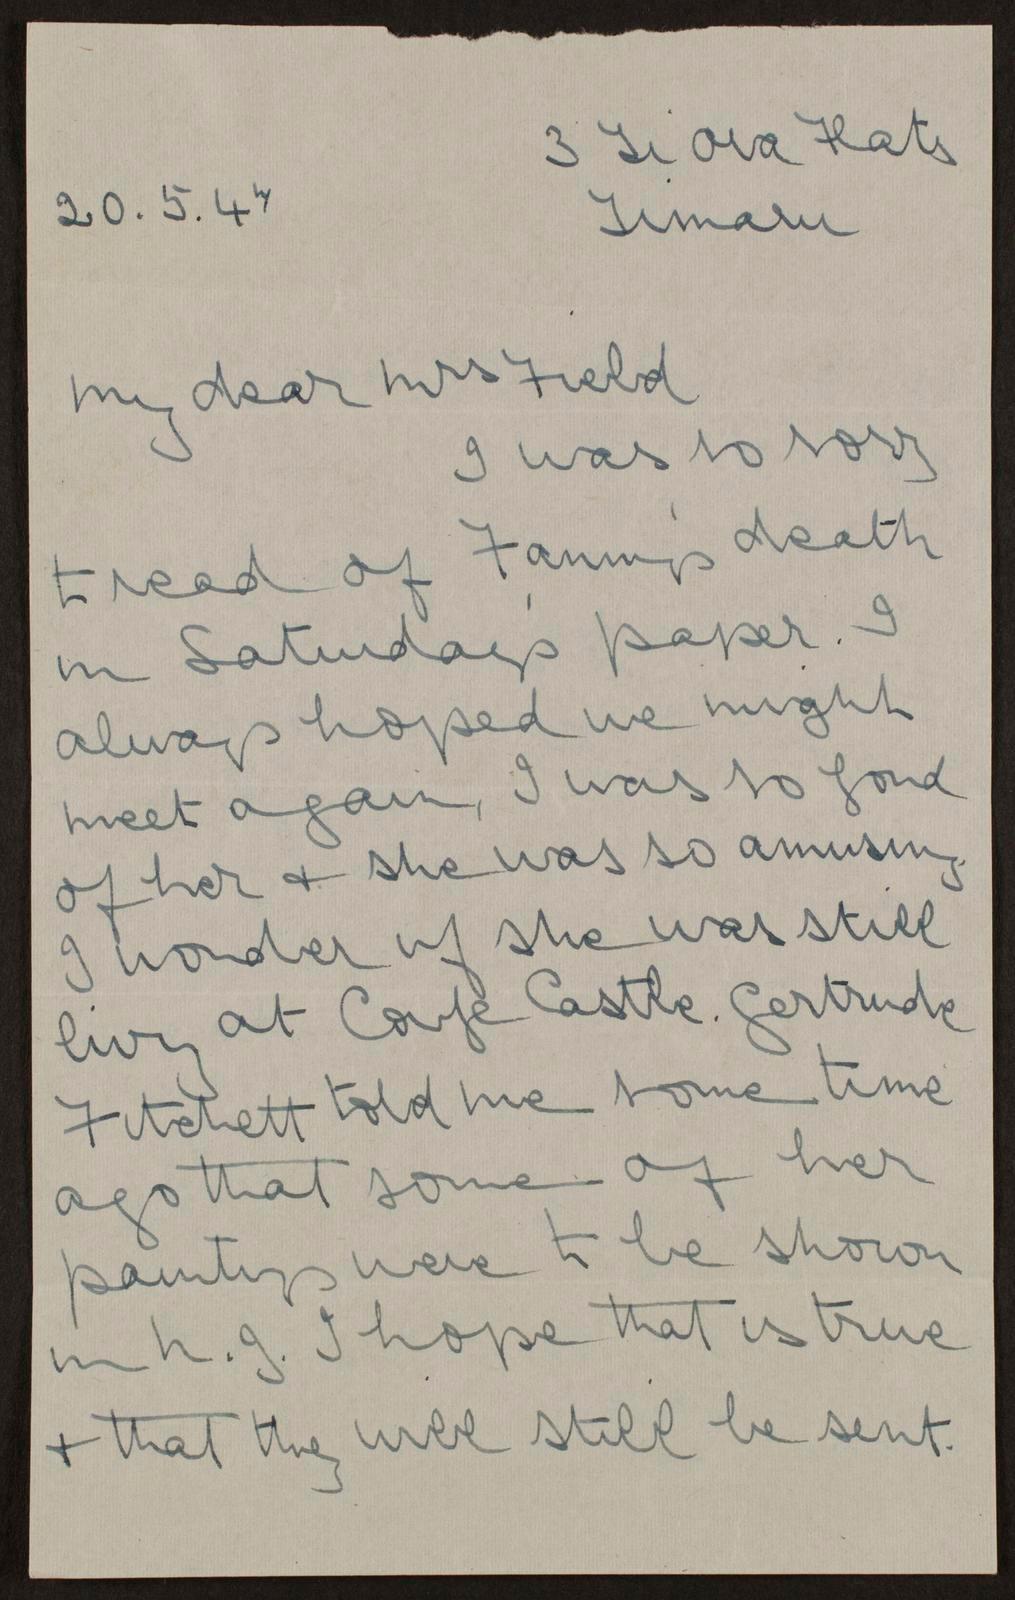 3 Ti Ora Flats
20.5.47
Timaru
My dear Mrs Field
I was so sorry
to read of Fanny's death
in Saturday's paper. I
always hoped we might
meet again, I was so fond
of her + she was so amusing
I wonder if she was still
living at Corfe Castle. Gertrude
Fitchett told me some time
ago that some of her
paintings were to be shown
in N.Z. I hope that is true
+ that they will still be sent.